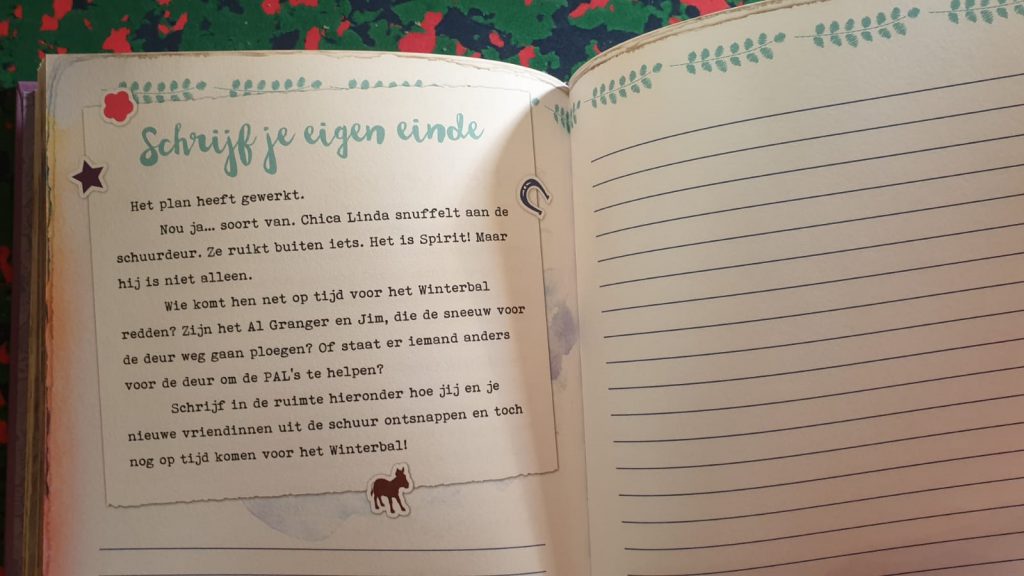 Schrijf je eigen einde
Het plan heeft gewerkt.
Nou ja... soort van. Chica Linda snuffelt aan de
schuurdeur. Ze ruikt buiten iets. Het is Spirit! Maar
hij is niet alleen.
Wie komt hen net op tijd voor het Winterbal
redden? Zijn het Al Granger en Jim, die de sneeuw voor
de deur weg gaan ploegen? Of staat er iemand anders
voor de deur om de PAL's te helpen?
Schrijf in de ruimte hieronder hoe jij en je
nieuwe vriendinnen uit de schuur ontsnappen en toch
nog op tijd komen voor het Winterbal!